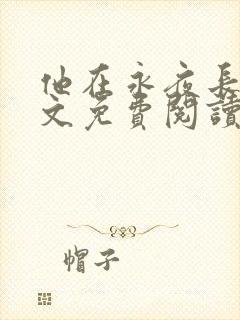 他在永夜長
文免費閱讀
帽子